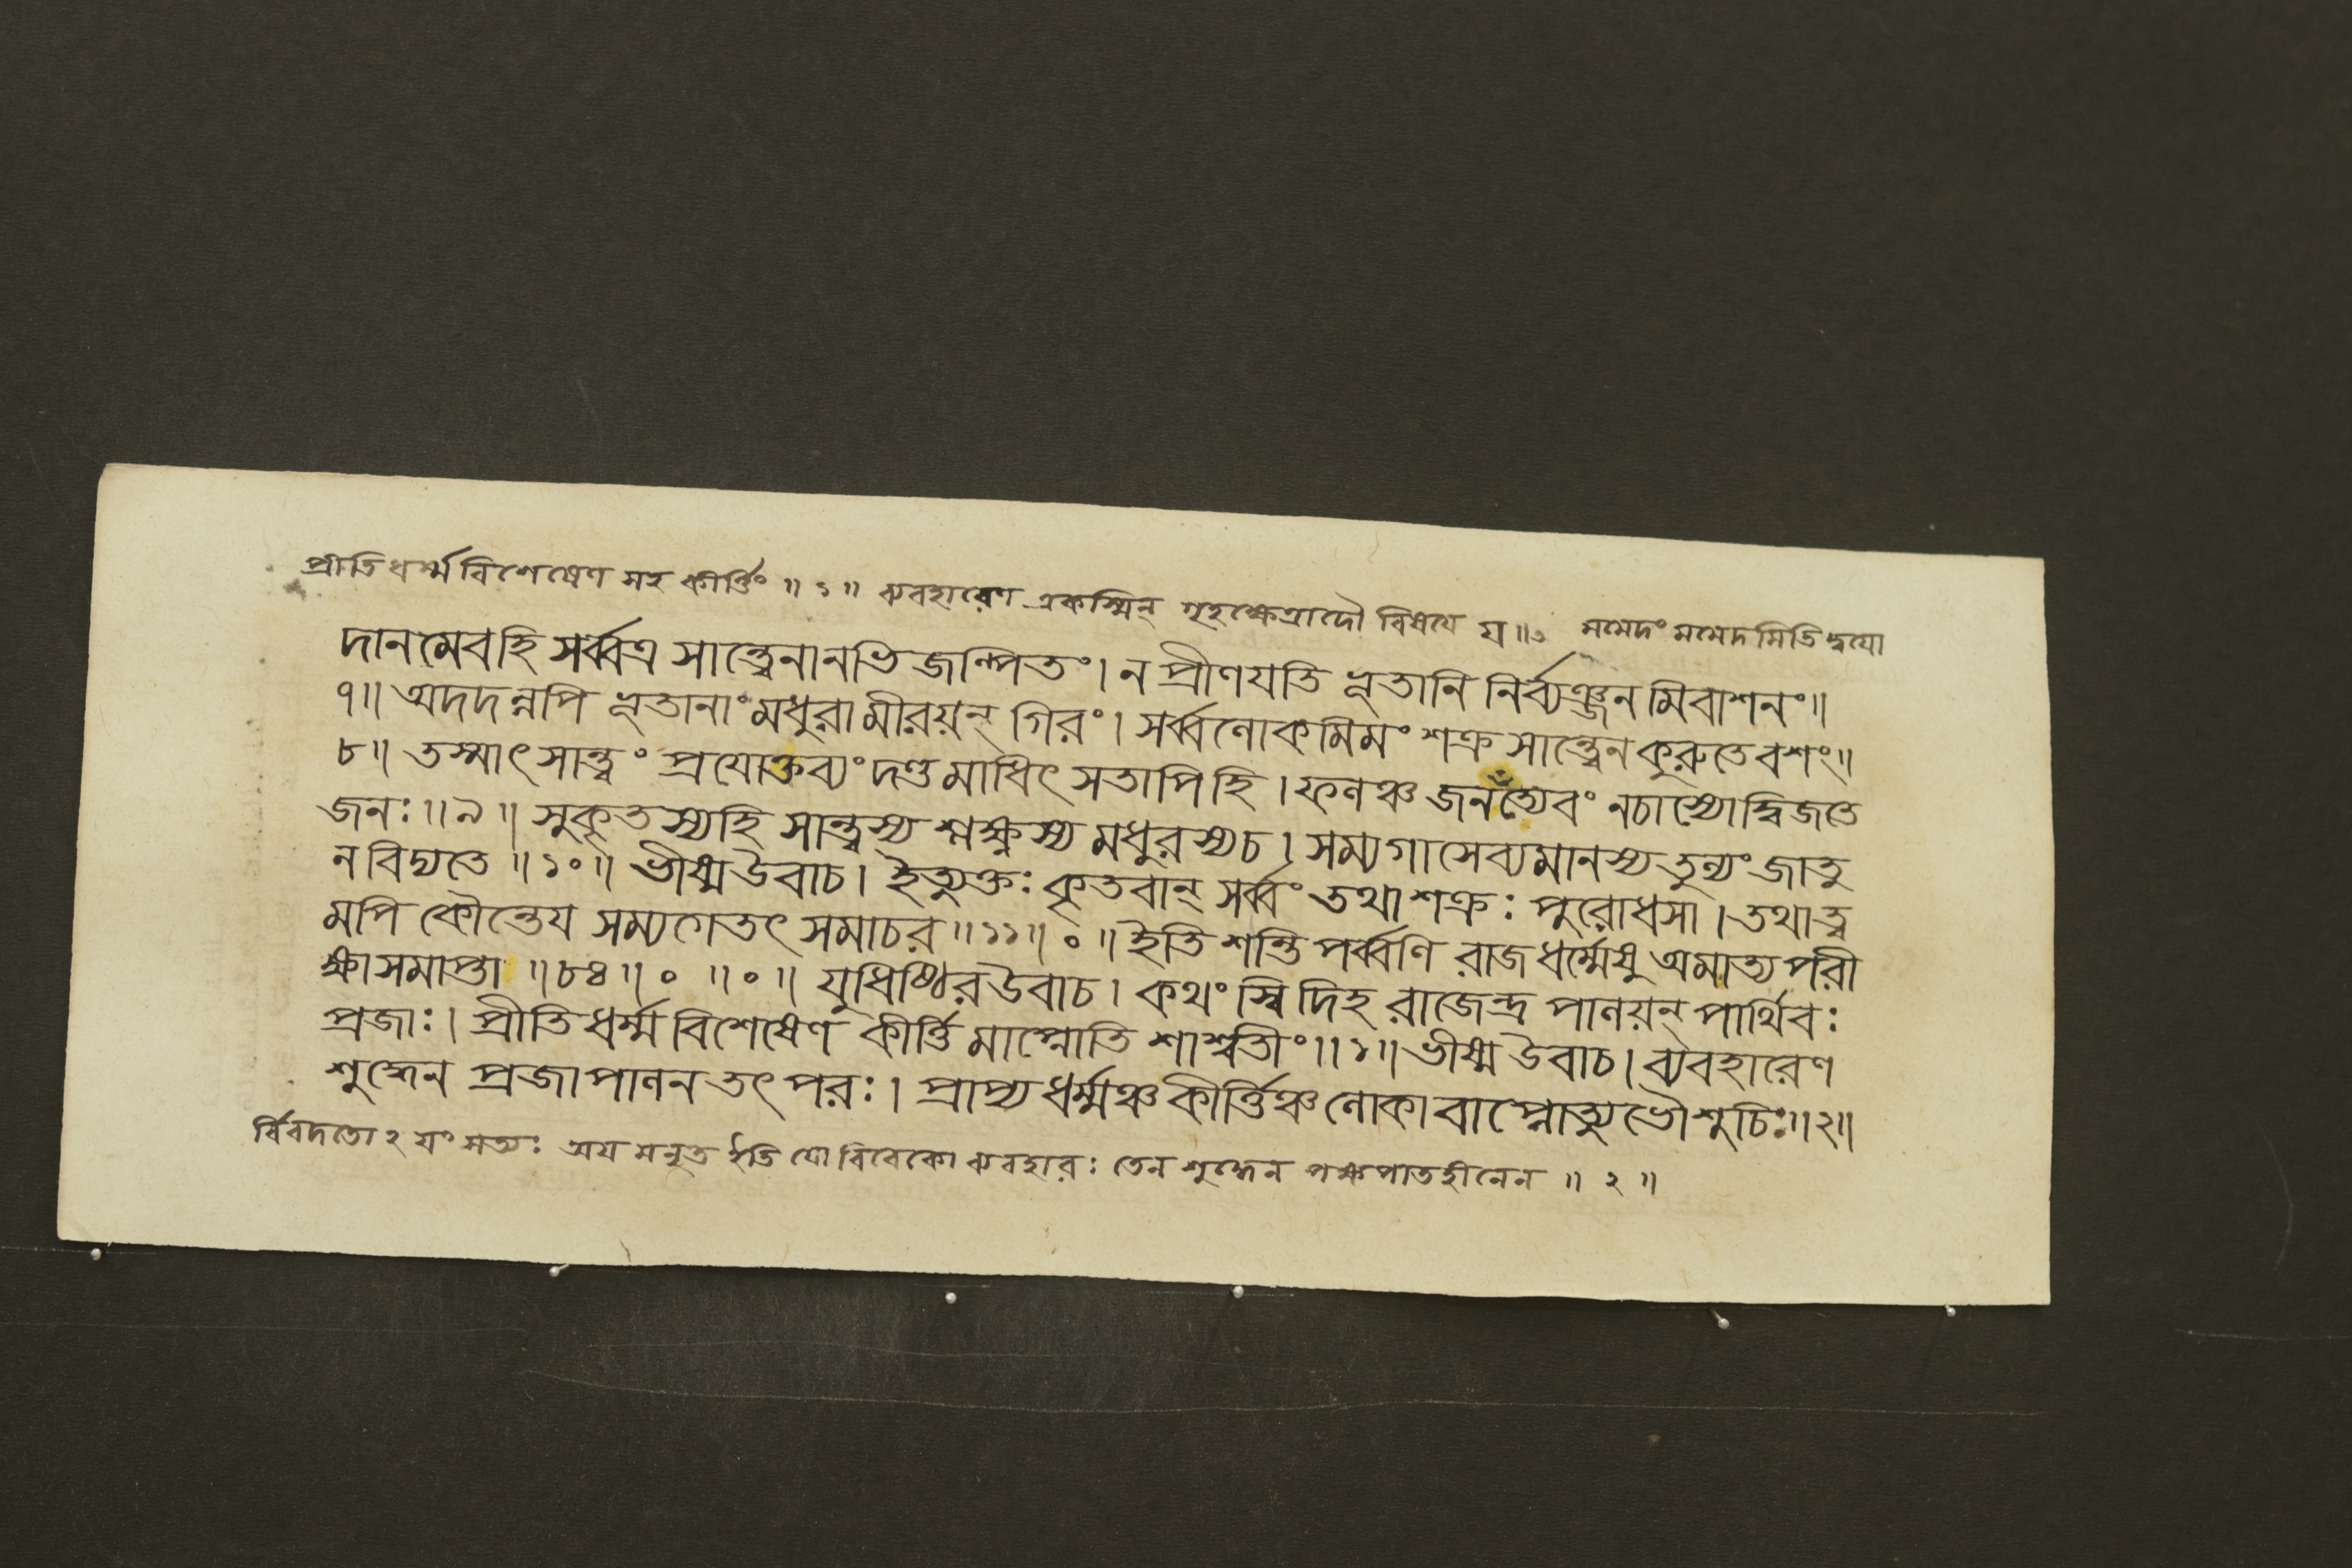 প্রীতিধর্ম্মবিশেষেণ সহ কীর্ত্তিং ॥ ১ ॥ ব্যবহারেণ একস্মিন্ গৃহক্ষেত্রাদৌ বিষযে য ॥ মমেদং মমেদমিতি দ্বযো
দানমেবহি সর্ব্বত্র সান্ত্বেনানভিজল্পিতং। ন প্রীণযতি ভূতানি নির্ব্যঞ্জনমিবাশনং॥
৭॥ অদদন্নপি ভূতানাং মধুরামীরয়ন্ গিরং। সর্ব্বলোকমিমং শক্র সান্ত্বেন কুরুতেবশং॥
৮॥ তস্মাৎ সান্ত্বং প্রযোক্তব্যং দণ্ডমাধিৎসতাপিহি। ফলঞ্চ জনযত্যেবং নচাস্যোদ্বিজতে
জনঃ॥৯॥ সুকৃতস্যহি সান্ত্বস্য শ্লক্ষ্ণস্য মধুরস্যচ। সম্যগাসেব্যমানস্য তুল্যং জাতু
ন বিদ্যতে ॥১০॥ ভীষ্মউবাচ। ইত্যুক্তঃ কৃতবান্ সর্ব্বং তথা শক্রঃ পুরোধসা। তথা ত্ব
মপি কৌন্তেয সম্যগেতৎ সমাচর॥১১॥০॥ ইতি শন্তিপর্ব্বণি রাজধর্ম্মেষু অমাত্যপরী
ক্ষাসমাপ্তা ॥৮৪॥০॥০॥ যুধিষ্ঠিরউবাচ। কথং স্বিদিহ রাজেন্দ্র পালয়ন্ পার্থিবঃ
প্রজাঃ। প্রীতিধর্ম্মবিশেষেণ কীর্ত্তিমাপ্নোতি শাশ্বতীং॥১॥ ভীষ্মউবাচ। ব্যবহারেণ
শুদ্ধেন প্রজাপালনতৎপরঃ। প্রাপ্য ধর্ম্মঞ্চ কীর্ত্তিঞ্চ লোকাবাপ্নোত্যুভৌ শুচিঃ॥২॥
র্বিবদতোঽযং সত্যঃ অযমনৃত ইতি যো বিবেকো ব্যবহারঃ তেন শুদ্ধেন পক্ষপাতহীনেন ॥ ২ ॥